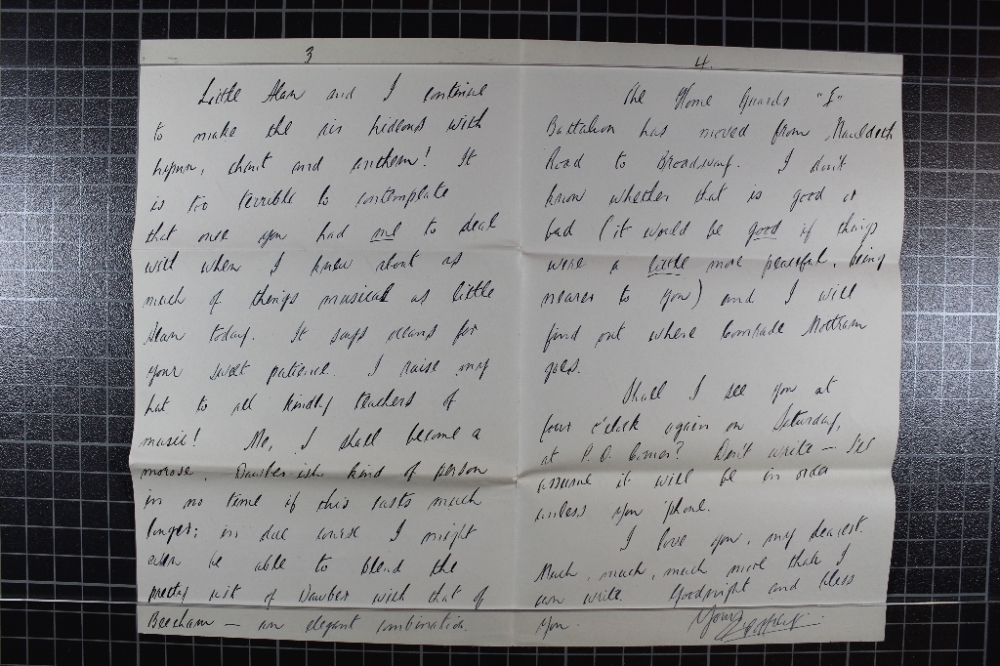 3
Little Alan and I continue
to make the air hideous with
hymn, chant and anthem! It
is too terrible to contemplate
that once you had me to deal
with when I knew about as
much of things musical as little
Alan today. It says oceans for
your sweet patience. I raise my
hat to all kindly teachers of
music! Me, I shall become a
morose, Dawber-ish kind of person
in no time if this lasts much
longer; in due course I might
even be able to blend the
pretty wit of Dawber with that of
Beecham — an elegant combination.
4.
The Home Guards "I"
Battalion has moved from Mauldeth
Road to Broadway. I don't
know whether that is good or
bad (it would be good if things
were a little more peaceful, being
nearer to you) and I will
find out where Comrade Mottram
goes.
Shall I see you at
four o'clock again on Saturday,
at P.O. Corner? Don't write — I'll
assume it will be in order
unless you 'phone.
I love you, my dearest.
Much, much, much more than I
can write. Goodnight and bless
you.
Yours